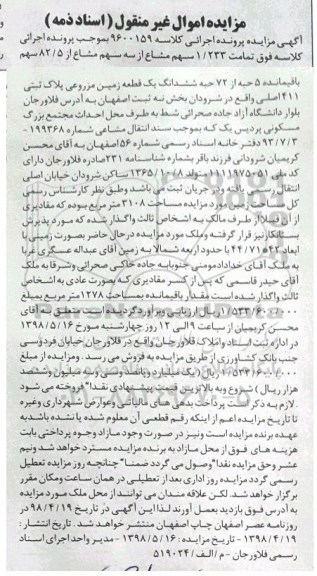 مزایده اموال غیر منقول (اسناد ذمه)
آگهی مزایده پرونده اجرائی کلاسه ۹۶۰۰۱۵۹ بموجب پرونده اجرائی
کلاسه فوق تمامت ۱/۲۳۳ سهم مشاع از سه سهم مشاع از ۸۲/۵ سهم
باقیمانده ۵ حبه از ۷۲ حبه ششدانگ یک قطعه زمین مزروعی پلاک ثبتی
۴۱۱ اصلی واقع در شرودان بخش نه ثبت اصفهان به آدرس فلاورجان
بلوار دانشگاه آزاد جاده صحرائی شط به طرف محل احداث مجتمع بزرگ
مسکونی پردیس یک که بموجب سند انتقال مشاعی شماره ۱۹۹۳۶۸ -
۹۳/۷/۳ دفتر خانه اسناد رسمی شماره ۵۶ اصفهان به آقای محسن
کریمیان شرودانی فرزند باقر بشماره شناسنامه ۲۳۱ صادره فلاورجان دارای
کد ملی ۱۱۱۱۹۷۵۰۵۱ متولد ۱۳۶۵/۱۰/۲۸ ساکن شرودان خیابان اصلی
انتقال رسمی یافته ودر جریان ثبت می باشد وطبق نظر کارشناس رسمی
کل مساحت زمین مورد مزایده مساحت ۳۱۰۸ متر مربع بوده که مقادیری
از آن قبلا از طرف مالک به اشخاص ثالث واگذار شده که مورد پذیرش
بستانکار نیز قرار گرفته وملک مورد مزایده در حال حاضر بصورت زمینی با
ابعاد ۴۴/۷۱ در ۴۲ با حدود اربعه شمالا به زمین آقای عبداله عسگری غربا
به ملک آقای خداداد مومنی جنوبا به جاده خاکی صحرائی وشرقا به ملک
آقای حیدر قاسمی که پس از کسر مقادیری که بصورت عادی به اشخاص
ثالث واگذار شده است مقدار باقیمانده بمساحت ۱۲۷۸ متر مربع بمبلغ
۱/۵۳۳/۶۰۰/۰۰۰ ریال ارزیابی وبرآورد گردیده است متعلق به آقای
محسن کریمیان از ساعت ۹ الی ۱۲ روز چهارشنبه مورخ ۱۳۹۸/۵/۱۶
در اداره ثبت اسناد واملاک فلاورجان واقع در فلاورجان خیابان فردوسی
جنب بانک کشاورزی از طریق مزایده به فروش می رسد . ومزایده از مبلغ
۱/۵۳۳/۶۰۰/۰۰۰ ریال (یک میلیارد وپانصد وسی وسه میلیون وششصد
هزار ریال ) شروع وبه بالاترین قیمت پیشنهادی نقدا" فروخته می شود
. لازم به ذکر است پرداخت بدهی های مالیاتی وعوارض شهرداری وغیره
تا تاریخ مزایده اعم از اینکه رقم قطعی آن معلوم شده یا نشده باشد به
عهده برنده مزایده است ونیز در صورت وجود مازاد وجوه پرداختی بابت
هزینه های فوق از محل مازاد به برنده مزایده مسترد خواهد شد ونیم
عشر وحق مزایده نقدا" وصول می گردد ضمنا" چنانچه روز مزایده تعطیل
رسمی گردد مزایده روز اداری بعد از تعطیلی در همان ساعت ومکان مقرر
برگزار خواهد شد. لکن علاقه مندان می توانند از محل ملک مورد مزایده
به آدرس فوق بازدید بعمل آورند لذا این آگهی در تاریخ ۹۸/۴/۱۹ در
روزنامه عصر اصفهان چاپ اصفهان منتشر خواهد شد . تاریخ انتشار :
۱۳۹۸/۴/۱۹ - تاریخ مزایده : ۱۳۹۸/۵/۱۶ - مدیر واحد اجرای اسناد
رسمی فلاورجان - م / الف / ۵۱۹۰۲۴